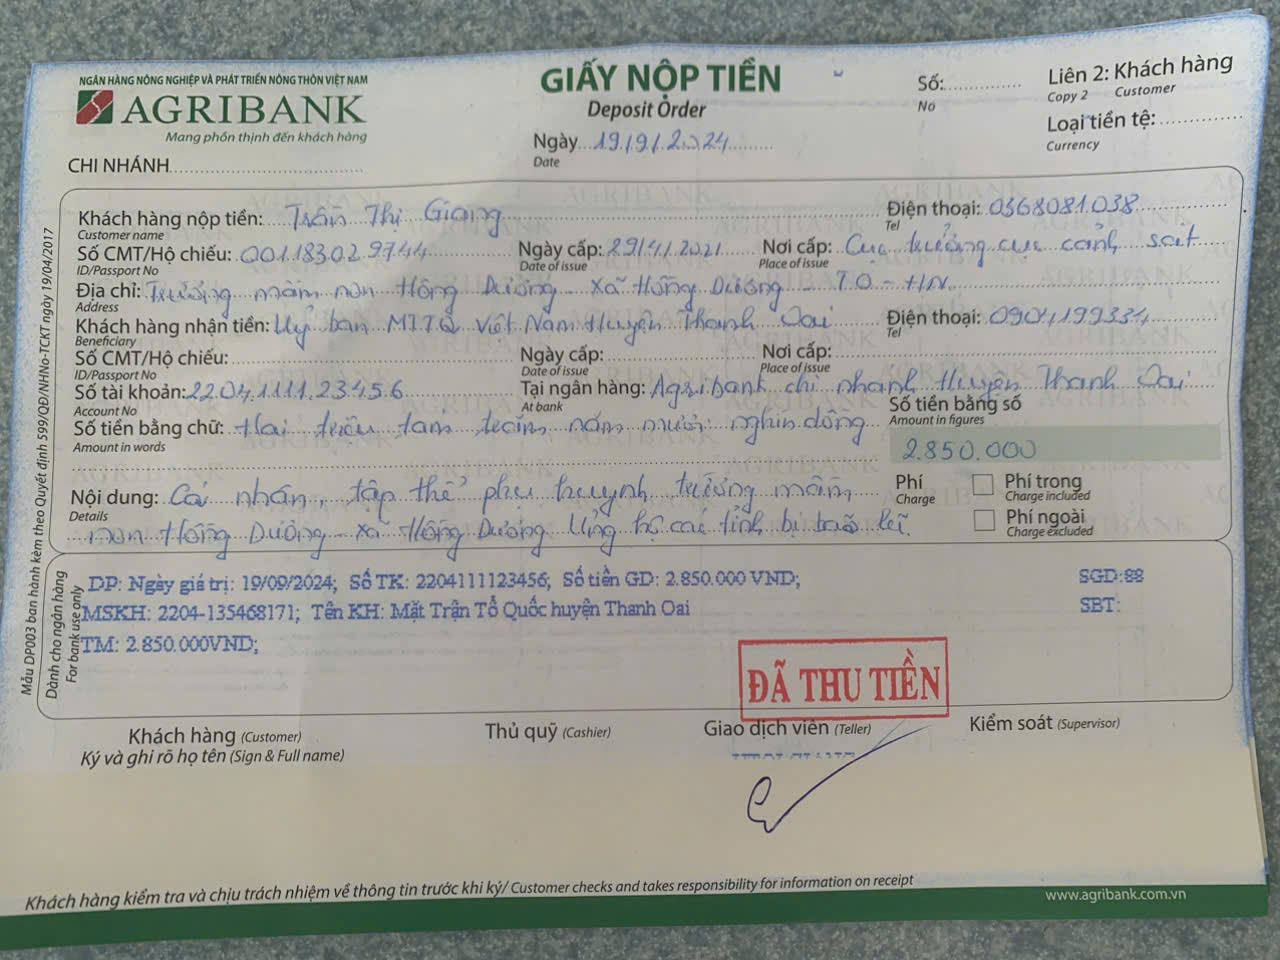 NGÂN HÀNG NÔNG NGHIỆP VÀ PHÁT TRIỂN NÔNG THÔN VIỆT NAM
AGRIBANK
Mang phồn thịnh đến khách hàng
CHI NHÁNH
GIẤY NỘP TIỀN
Deposit Order
Ngày 19/9/2024
Date
Số:
No
Liên 2: Khách hàng
Copy 2 Customer
Loại tiền tệ:
Currency
Khách hàng nộp tiền: Trần Thị Giang Điện thoại: 0368081038
Customer name Tel
Số CMT/Hộ chiếu: 001183029744 Ngày cấp: 29/4/2021 Nơi cấp: Cục trưởng cục cảnh sát
ID/Passport No Date of issue Place of issue
Địa chỉ: Trường mầm non Hồng Dương - Xã Hồng Dương - T.O - HN.
Address
Khách hàng nhận tiền: Uỷ ban MTTQ Việt Nam Huyện Thanh Oai Điện thoại: 0904199334
Beneficiary Tel
Số CMT/Hộ chiếu: Ngày cấp: Nơi cấp:
ID/Passport No Date of issue Place of issue
Số tài khoản: 2204.1111.23456 Tại ngân hàng: Agribank chi nhánh Huyện Thanh Oai
Account No At bank
Số tiền bằng chữ: Hai triệu tám trăm năm mươi nghìn đồng
Amount in words
Số tiền bằng số
Amount in figures
2.850.000
Nội dung: Cá nhân, tập thể phụ huynh trường mầm
Details
non Hồng Dương - xã Hồng Dương Ủng hộ các tỉnh bị bão lũ
Phí
Charge
Phí trong
Charge included
Phí ngoài
Charge excluded
DP: Ngày giá trị: 19/09/2024; Số TK: 2204111123456; Số tiền GD: 2.850.000 VND; SGD:88
MSKH: 2204-135468171; Tên KH: Mặt Trận Tổ Quốc huyện Thanh Oai SBT:
TM: 2.850.000VND;
Dành cho ngân hàng
For bank use only
Mẫu DP003 ban hành kèm theo Quyết định 599/QĐ/NHNo-TCKT ngày 19/04/2017
ĐÃ THU TIỀN
Khách hàng (Customer) Thủ quỹ (Cashier) Giao dịch viên (Teller) Kiểm soát (Supervisor)
Ký và ghi rõ họ tên (Sign & Full name)
Khách hàng kiểm tra và chịu trách nhiệm về thông tin trước khi ký/ Customer checks and takes responsibility for information on receipt
www.agribank.com.vn